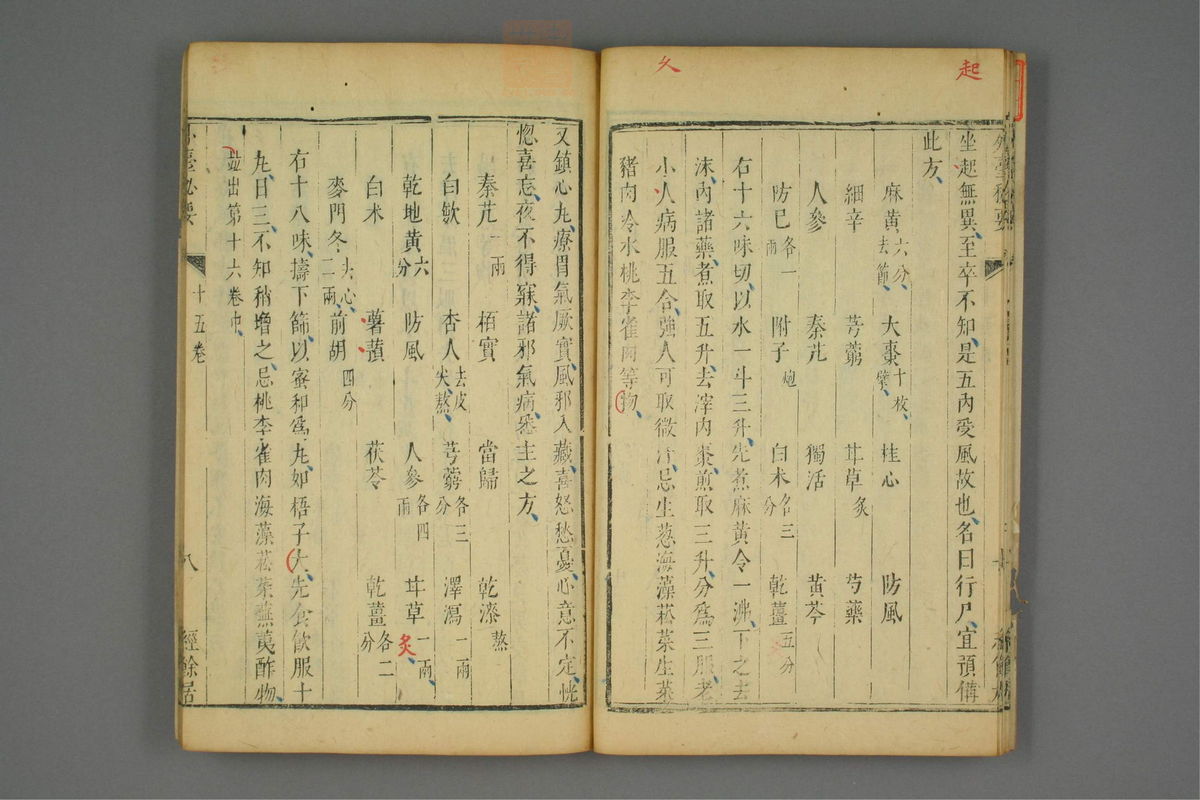 起
攵
外臺秘要
坐起無異至卒不知是五內受風故也名曰行尸宜預備
此方
麻黃六分去節 大棗十枚擘 桂心 防風
細辛 芎藭 甘草炙 芍藥
人參 秦艽 獨活 黃芩
防已各一兩 附子炮 白朮各三分 乾薑五分
右十六味切以水一斗三升先煮麻黃令一沸下之去
沫內諸藥煮取五升去滓內棗煎取三升分爲三服老
小人病服五合強人可取微汗忌生葱海藻菘菜生菜
豬肉冷水桃李雀肉等物
又鎮心丸療胃氣厥實風邪入藏喜怒愁憂心意不定恍
惚喜忘夜不得寐諸邪氣病悉主之方
秦艽一兩 栢實 當歸 乾漆熬
白歛 杏人去皮尖熬 芎藭各三分 澤瀉一兩
乾地黃六分 防風 人參各四兩 甘草炙一兩
白朮 薯蕷 茯苓 乾薑各二分
麥門冬去心二兩 前胡四分
右十八味擣下篩以蜜和爲丸如梧子大先食飲服十
丸日三不知稍增之忌桃李雀肉海藻菘菜蕪荑酢物
並出第十六卷中
外臺秘要 十五卷 八 經餘居